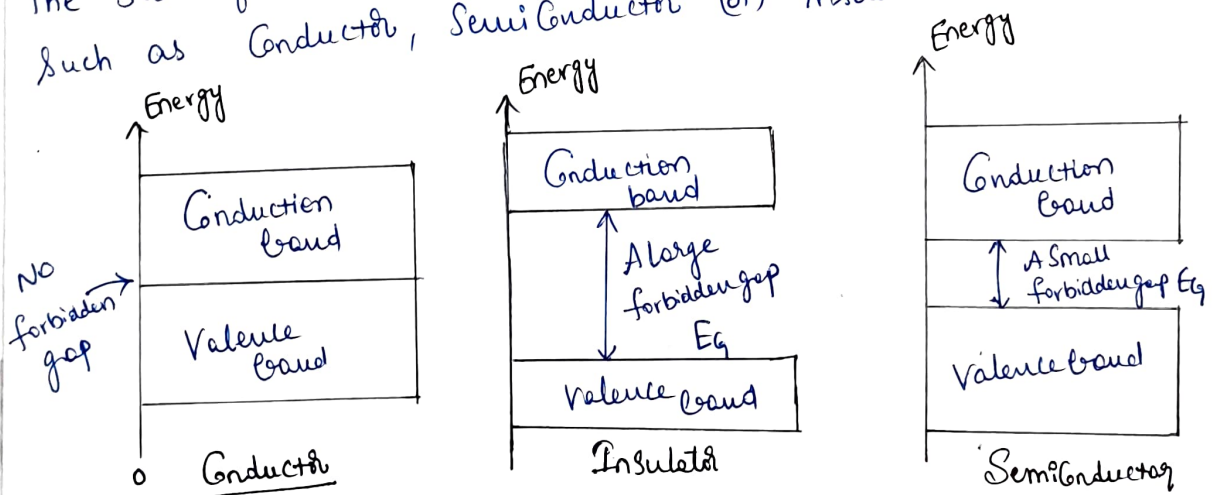 The
Such as Conductor, SemiConductor (or)
Energy
Conduction
band
NO
forbidden
gap
Valence
band
0
Conductor
Energy
Conduction
band
A large
forbidden gap
EG
Valence band
Insulator
Energy
Conduction
band
A Small
forbidden gap EG
Valence band
SemiConductor